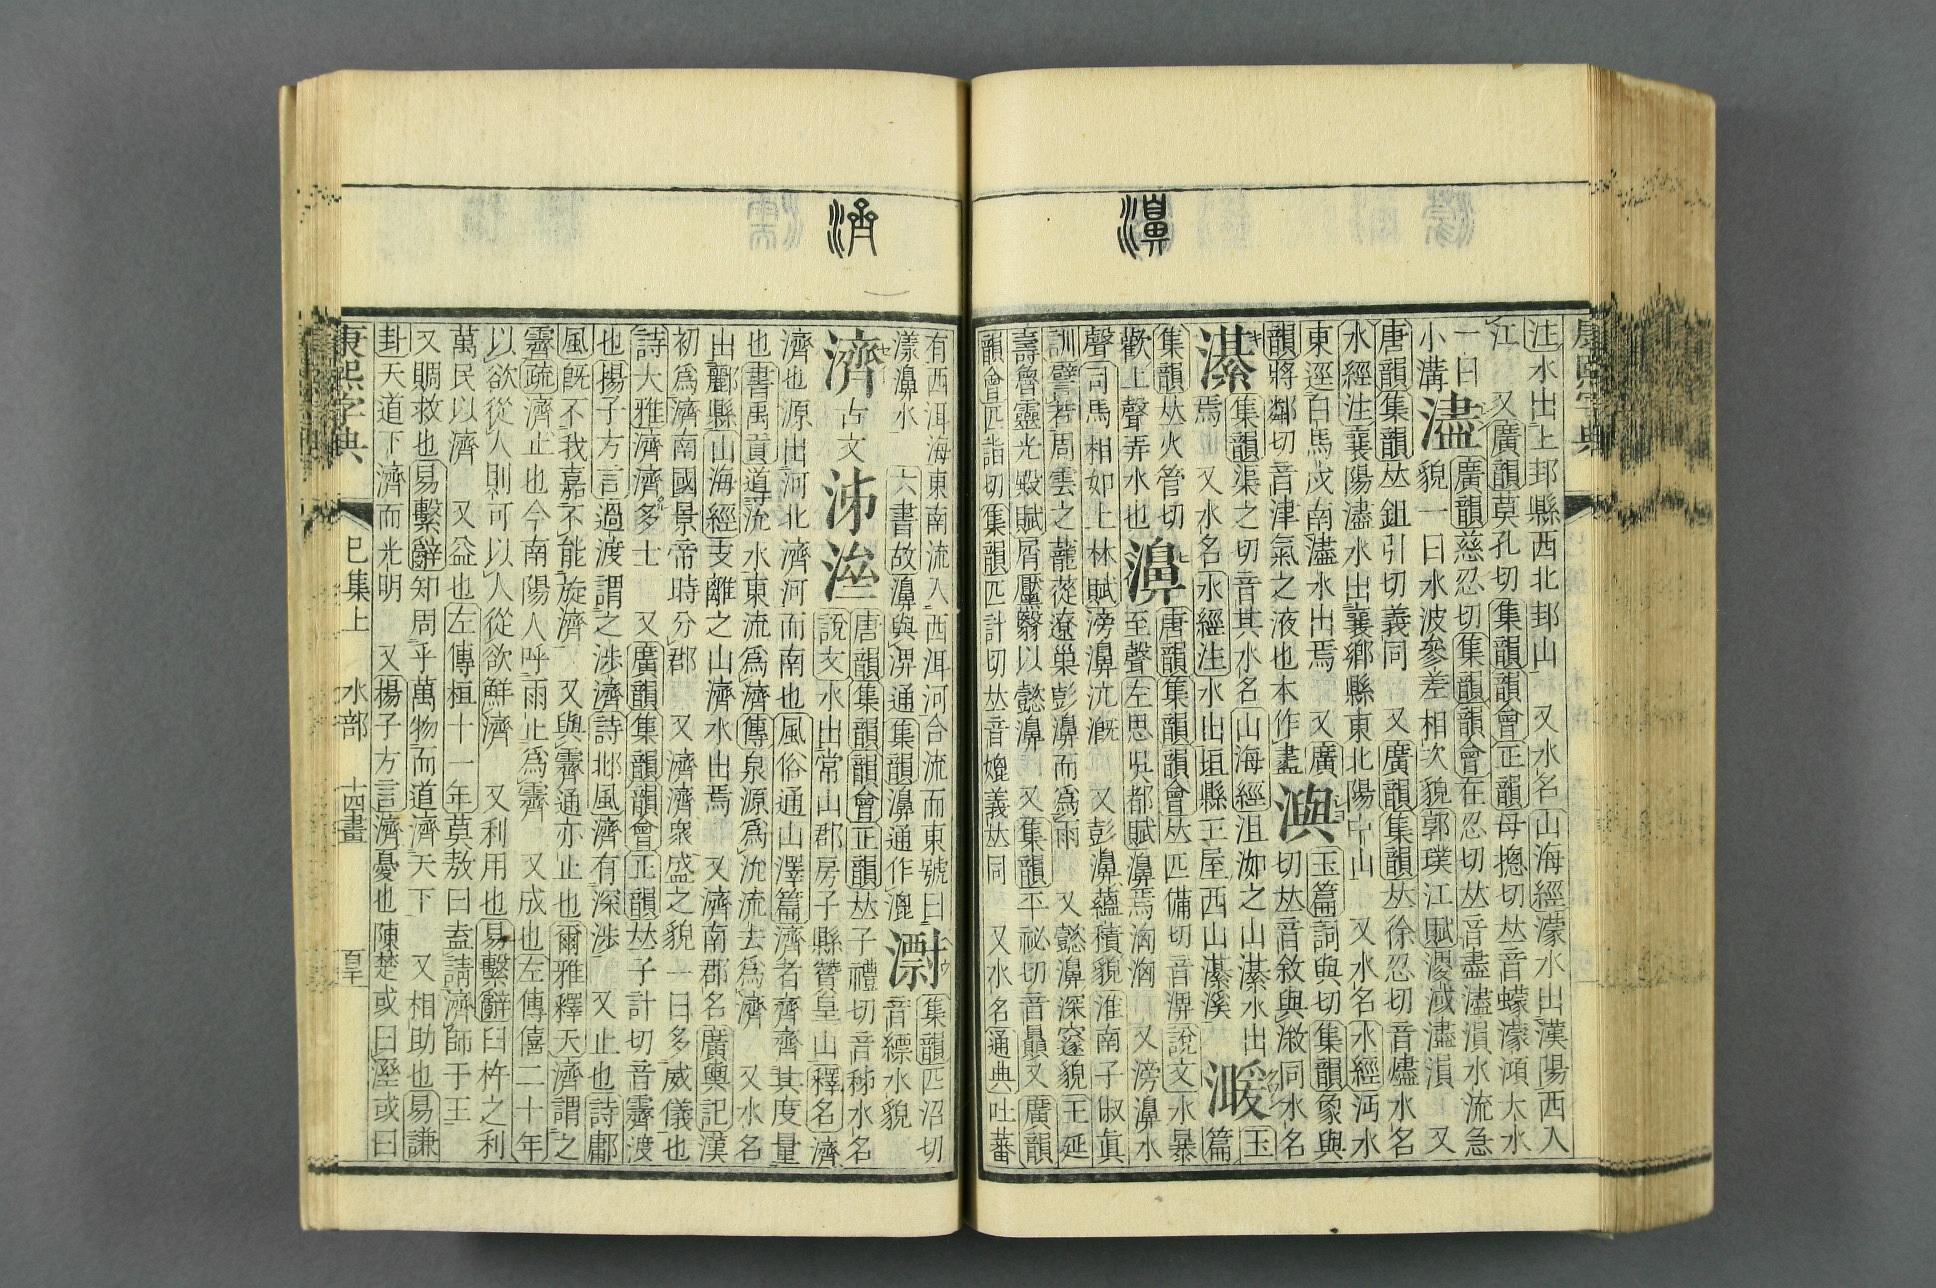 濞
康熙字典
注水出上邽縣西北邽山 又水名山海經濛水出漢陽西入
江 又廣韻莫孔切集韻韻會正韻母摠切𠀤音蠓濛澒大水
一曰
小溝
濜
廣韻慈忍切集韻韻會在忍切𠀤音盡濜溳水流急
貌一曰水波參差相次貌郭璞江賦濜溳 又
唐韻集韻𠀤鉏引切義同 又廣韻集韻𠀤徐忍切音燼水名
水經注襄陽濜水出襄鄉縣東北陽中山 又水名水經沔水
東逕白馬戍南濜水出焉 又廣
韻將鄰切音津氣之液也本作𧗁
澦
玉篇詞與切集韻象與
切𠀤音敘與漵同水名
濝
集韻渠之切音其水名山海經沮洳之山濝水出
焉 又水名水經注水出垣縣王屋西山濝溪
濣
玉
篇
集韻𠀤火管切
歡上聲弄水也
濞
唐韻集韻韻會𠀤匹備切音淠說文水暴
至聲左思吳都賦濞焉洶洶 又滂濞水
聲司馬相如上林賦滂濞沆漑 又彭濞蘊積貌淮南子俶眞
訓譬若周雲之蘢蓯遼巢彭濞而爲雨 又懿濞深邃貌王延
壽魯靈光殿賦屑黶翳以懿濞 又集韻平祕切音贔又廣韻
韻會匹詣切集韻匹計切𠀤音媲義𠀤同 又水名通典吐蕃
濟
有西洱海東南流入西洱河合流而東號曰
漾濞水 六書故濞與淠通集韻濞通作漶
㵱
集韻匹沼切
音縹水貌
濟
古文
泲
𣸈
唐韻集韻韻會正韻𠀤子禮切音秭水名
說文水出常山郡房子縣贊皇山釋名濟
濟也源出河北濟河而南也風俗通山澤篇濟者齊齊其度量
也書禹貢導沇水東流爲濟傳泉源爲沇流去爲濟 又水名
出酈縣山海經支離之山濟水出焉 又濟南郡名廣輿記漢
初爲濟南國景帝時分郡 又濟濟衆盛之貌一曰多威儀也
詩大雅濟濟多士 又廣韻集韻韻會正韻𠀤子計切音霽渡
也揚子方言過渡謂之涉濟詩邶風濟有深涉 又止也詩鄘
風旣不我嘉不能旋濟 又與霽通亦止也爾雅釋天濟謂之
霽疏濟止也今南陽人呼雨止爲霽 又成也左傳僖二十年
以欲從人則可以人從欲鮮濟 又利用也易繫辭臼杵之利
萬民以濟 又益也左傳桓十一年莫敖曰盍請濟師于王
又賙救也易繫辭知周乎萬物而道濟天下 又相助也易謙
卦天道下濟而光明 又揚子方言濟憂也陳楚或曰溼或曰
康熙字典 巳集上 水部 十四畫